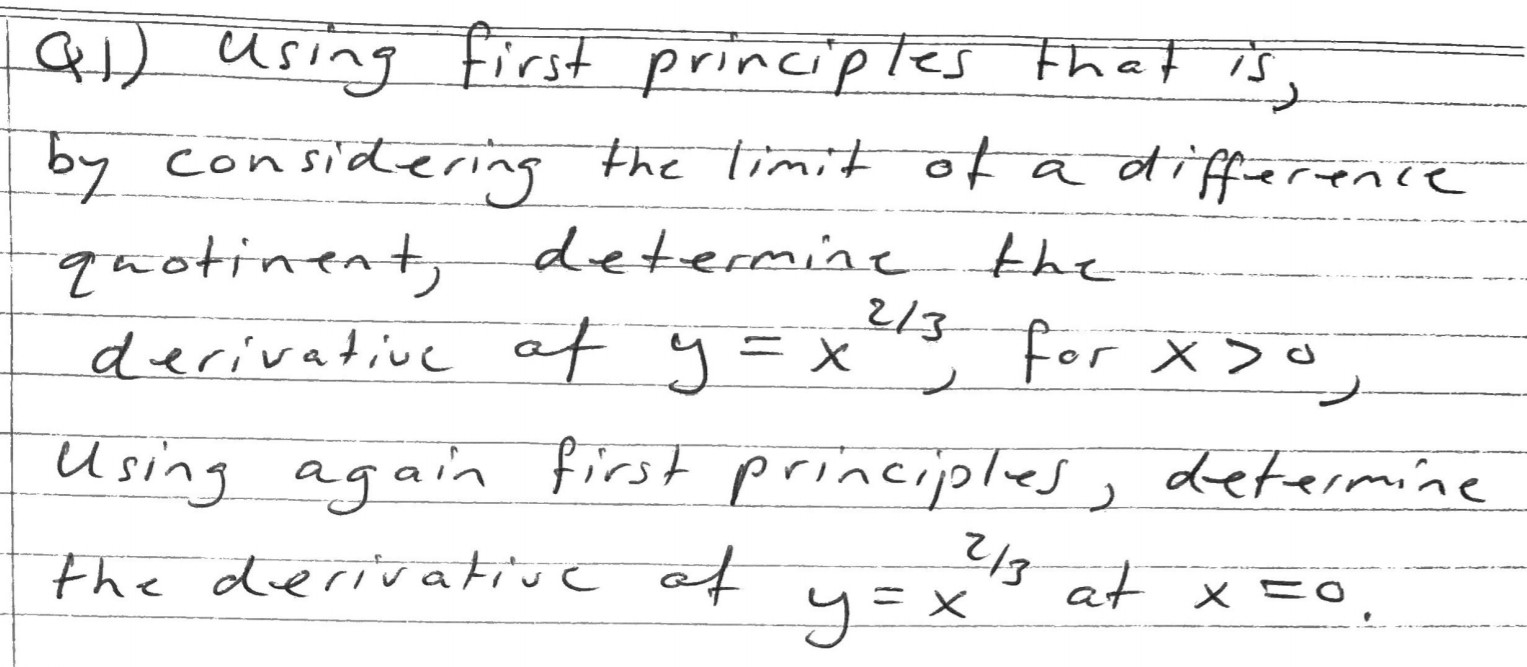 Q1) Using first principles that is,
by considering the limit of a difference
quotinent, determine the
derivative of y = x^2/3, for x > 0,
Using again first principles, determine
the derivative of y = x^2/3 at x = 0.